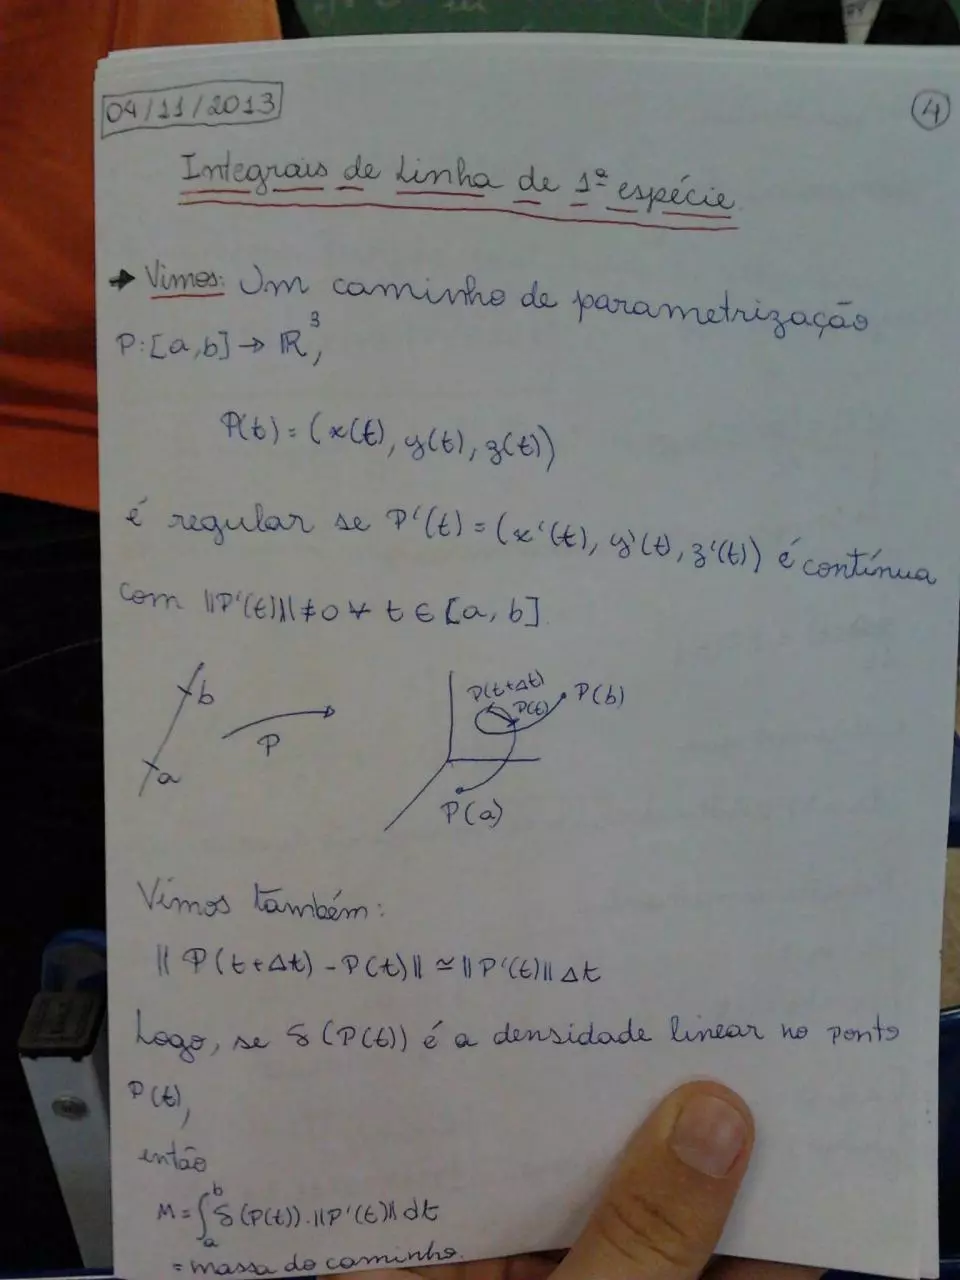 04/11/2013
4
Integrais de Linha de 1ª espécie.
→ Vimos: Um caminho de parametrização
P:[a,b] → ℝ³,
P(t) = (x(t), y(t), z(t))
é regular se P'(t) = (x'(t), y'(t), z'(t)) é contínua
com ||P'(t)|| ≠ 0 ∀ t ∈ [a, b].
b
a
P
P(t+Δt)
P(t)
P(b)
P(a)
Vimos também:
|| P(t+Δt) - P(t)|| ≃ ||P'(t)|| Δt
Logo, se δ(P(t)) é a densidade linear no ponto
P(t),
então
M = ∫ₐᵇ δ(P(t)).||P'(t)|| dt
= massa do caminho.